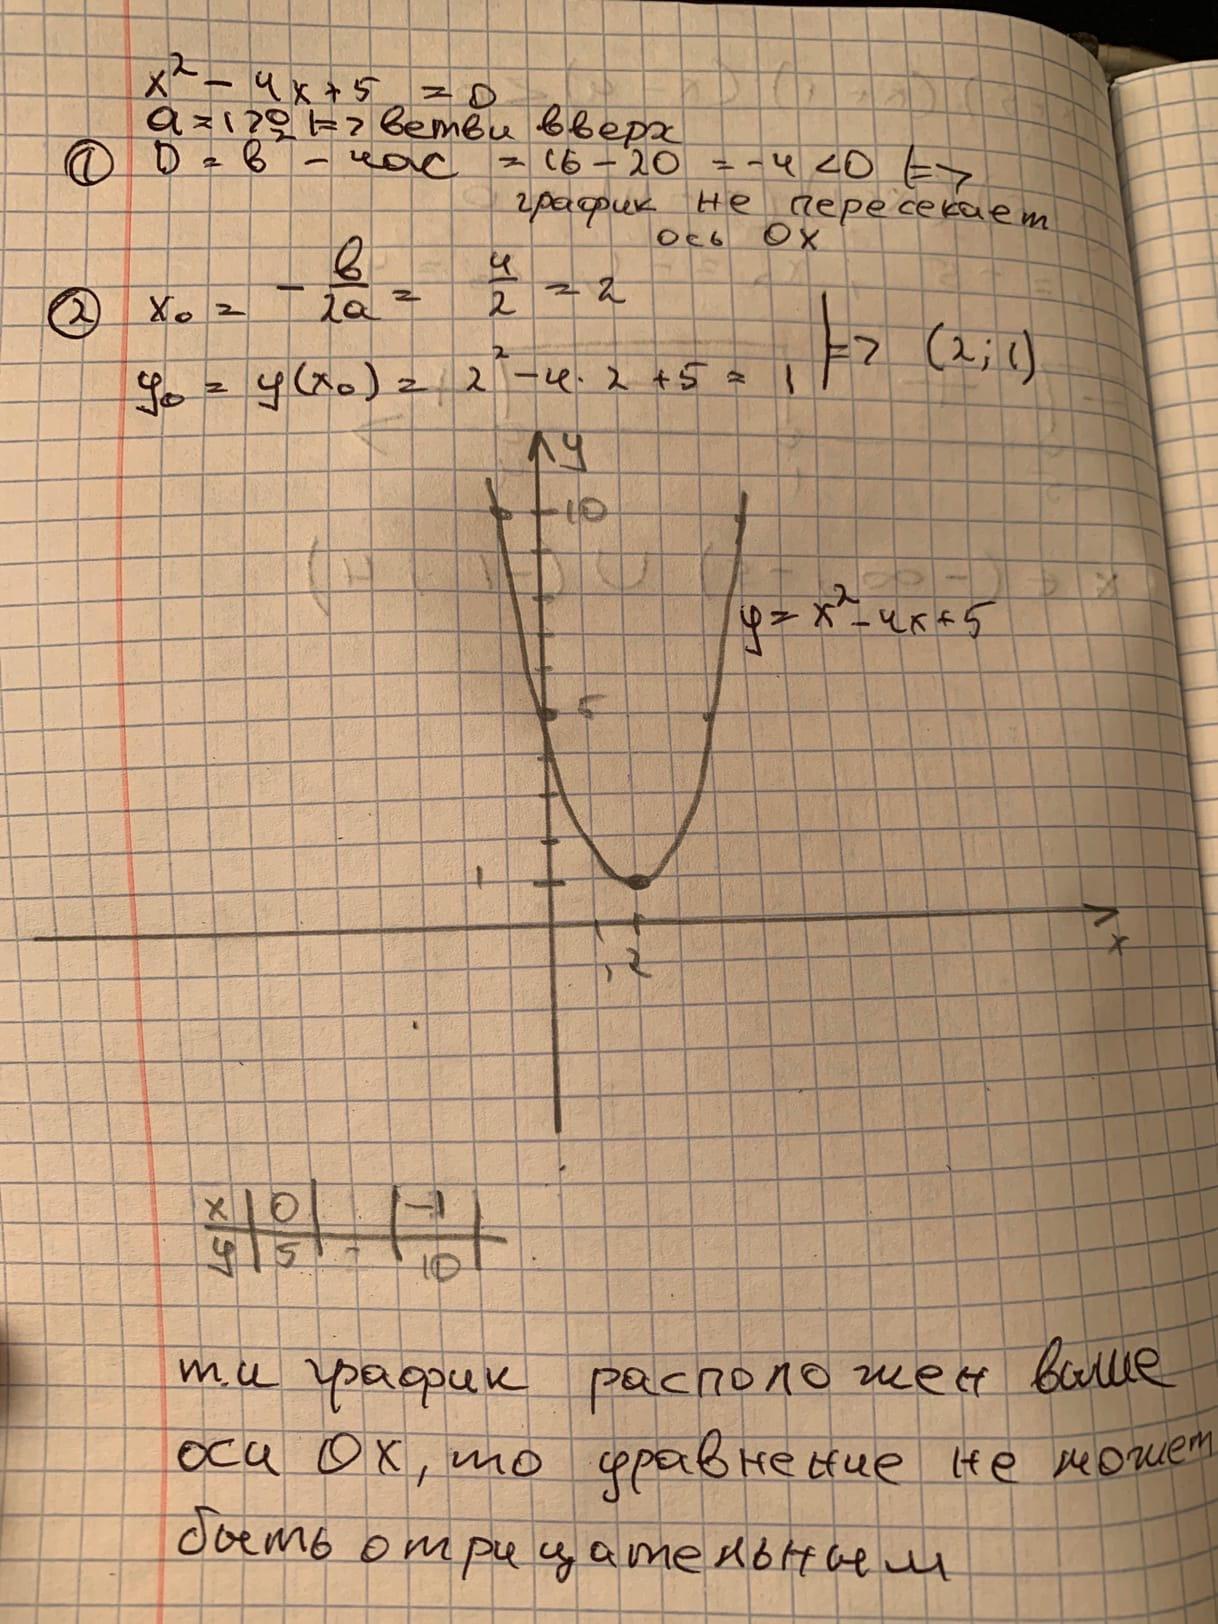 x² - 4x + 5 = 0
a = 1 > 0 |=> ветви вверх
① D = в² - 4ac = 16 - 20 = -4 < 0 |=>
график не пересекает
ось OX
② x₀ = - в/2a = 4/2 = 2
y₀ = y(x₀) = 2² - 4·2 + 5 = 1 |=> (2; 1)
y
10
y = x² - 4x + 5
5
1
x
1 2
x | 0 | | -1 |
y | 5 | - | 10 |
т.и график расположен выше
оси OX, то уравнение не может
быть отрицательным